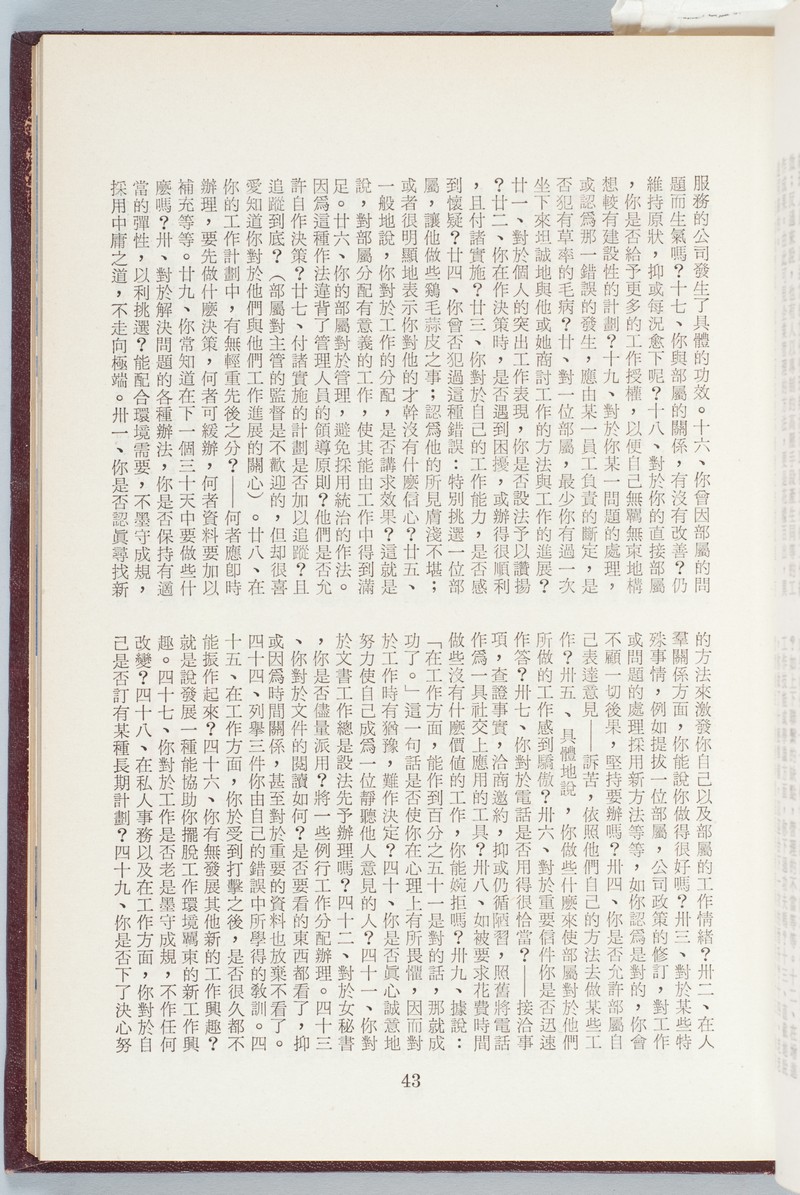 服務的公司發生了具體的功效。十六、你曾因部屬的問
題而生氣嗎?十七、你與部屬的關係,有沒有改善?仍
維持原狀,抑或每況愈下呢?十八、對於你的直接部屬
,你是否給予更多的工作授權,以便自己無羈無束地構
想較有建設性的計劃?十九、對於你某一問題的處理,
或認爲那一錯誤的發生,應由某一員工負責的斷定,是
否犯有草率的毛病?廿、對一位部屬,最少你有過一次
坐下來坦誠地與他或她商討工作的方法與工作的進展?
廿一、對於個人的突出工作表現,你是否設法予以讚揚
?廿二、你在作決策時,是否遇到困擾,或辦得很順利
,且付諸實施?廿三、你對於自己的工作能力,是否感
到懷疑?廿四、你曾否犯過這種錯誤:特別挑選一位部
屬,讓他做些鷄毛蒜皮之事;認爲他的所見膚淺不堪;
或者很明顯地表示你對他的才幹沒有什麼信心?廿五、
一般地說,你對於工作的分配,是否講求效果?這就是
說,對部屬分配有意義的工作,使其能由工作中得到滿
足。廿六、你的部屬對於管理,避免採用統治的作法。
因爲這種作法違背了管理人員的領導原則?他們是否允
許自作決策?廿七、付諸實施的計劃是否加以追蹤?且
追蹤到底?(部屬對主管的監督是不歡迎的,但却很喜
愛知道你對於他們與他們工作進展的關心)。廿八、在
你的工作計劃中,有無輕重先後之分?——何者應卽時
辦理,要先做什麼決策,何者可緩辦,何者資料要加以
補充等等。廿九、你常知道在下一個三十天中要做些什
麼嗎?卅、對於解決問題的各種辦法,你是否保持有適
當的彈性,以利挑選?能配合環境需要,不墨守成規,
採用中庸之道,不走向極端。卅一、你是否認眞尋找新
的方法來激發你自己以及部屬的工作情緒?卅二、在人
羣關係方面,你能說你做得很好嗎?卅三、對於某些特
殊事情,例如提拔一位部屬,公司政策的修訂,對工作
或問題的處理採用新方法等等,如你認爲是對的,你會
不顧一切後果,堅持要辦嗎?卅四、你是否允許部屬自
己表達意見——訴苦,依照他們自己的方法去做某些工
作?卅五、具體地說,你做些什麼來使部屬對於他們
所做的工作感到驕傲?卅六、對於重要信件你是否迅速
作答?卅七、你對於電話是否用得很恰當?——接洽事
項,查證事實,洽商邀約,抑或仍循陋習,照舊將電話
作爲一具社交上應用的工具?卅八、如被要求花費時間
做些沒有什麼價値的工作,你能婉拒嗎?卅九、據說:
「在工作方面,能作到百分之五十一是對的話,那就成
功了。」這一句話是否使你在心理上有所畏懼,因而對
於工作時有猶豫,難作決定?四十、你是否眞心誠意地
努力使自己成爲一位靜聽他人意見的人?四十一、你對
於文書工作總是設法先予辦理嗎?四十二、對於女秘書
,你是否儘量派用?將一些例行工作分配辦理。四十三
、你對於文件的閱讀如何?是否要看的東西都看了,抑
或因爲時間關係,甚至對於重要的資料也放棄不看了。
四十四、列擧三件你由自己的錯誤中所學得的敎訓。四
十五、在工作方面,你於受到打擊之後,是否很久都不
能振作起來?四十六、你有無發展其他新的工作興趣?
就是說發展一種能協助你擺脫工作環境羈束的新工作興
趣。四十七、你對於工作是否老是墨守成規,不作任何
改變?四十八、在私人事務以及在工作方面,你對於自
己是否訂有某種長期計劃?四十九、你是否下了決心努
43